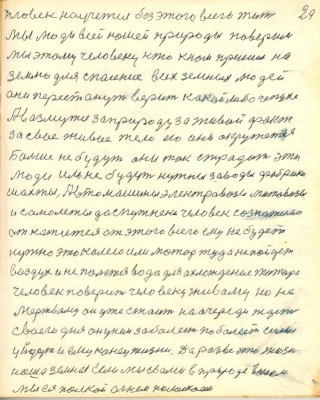 29
человек научется без этого всего жить
Мы люди всей нашей природы поверим
мы этому человеку кто к нам пришел на
землю для спасение всех земных людей
они перестанут верит какой либо чепухе
А возмутся за природу за живой факт
за свое живое тело и они окружется
Больше не будут они так страдат эти
люди им не будут нужны заводы фабрики
шахты, Автомашины электровозы мотовозы
и самолеты да спутники человек сознательно
откажется от этого всего ему не будет
нужно это колесо или мотор туда не пойдет
воздух и не польется вода для охлождение мотора
Человек поверит человеку живому но не
мертвому он уже стоит на очереди ждет
своего дня он у них заболеет поболеет силы
уйдут и ему конец жизни. Да разве это жизнь
наша земная Если мы свами в природе
мы ся